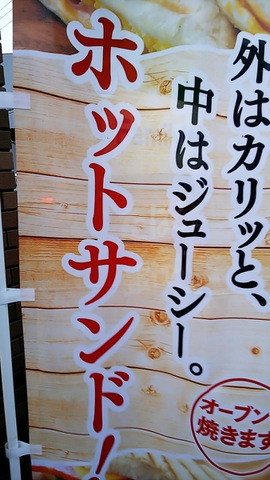 外はカリッと、
中はジューシー。
ホットサンド！
オーブン
焼きます